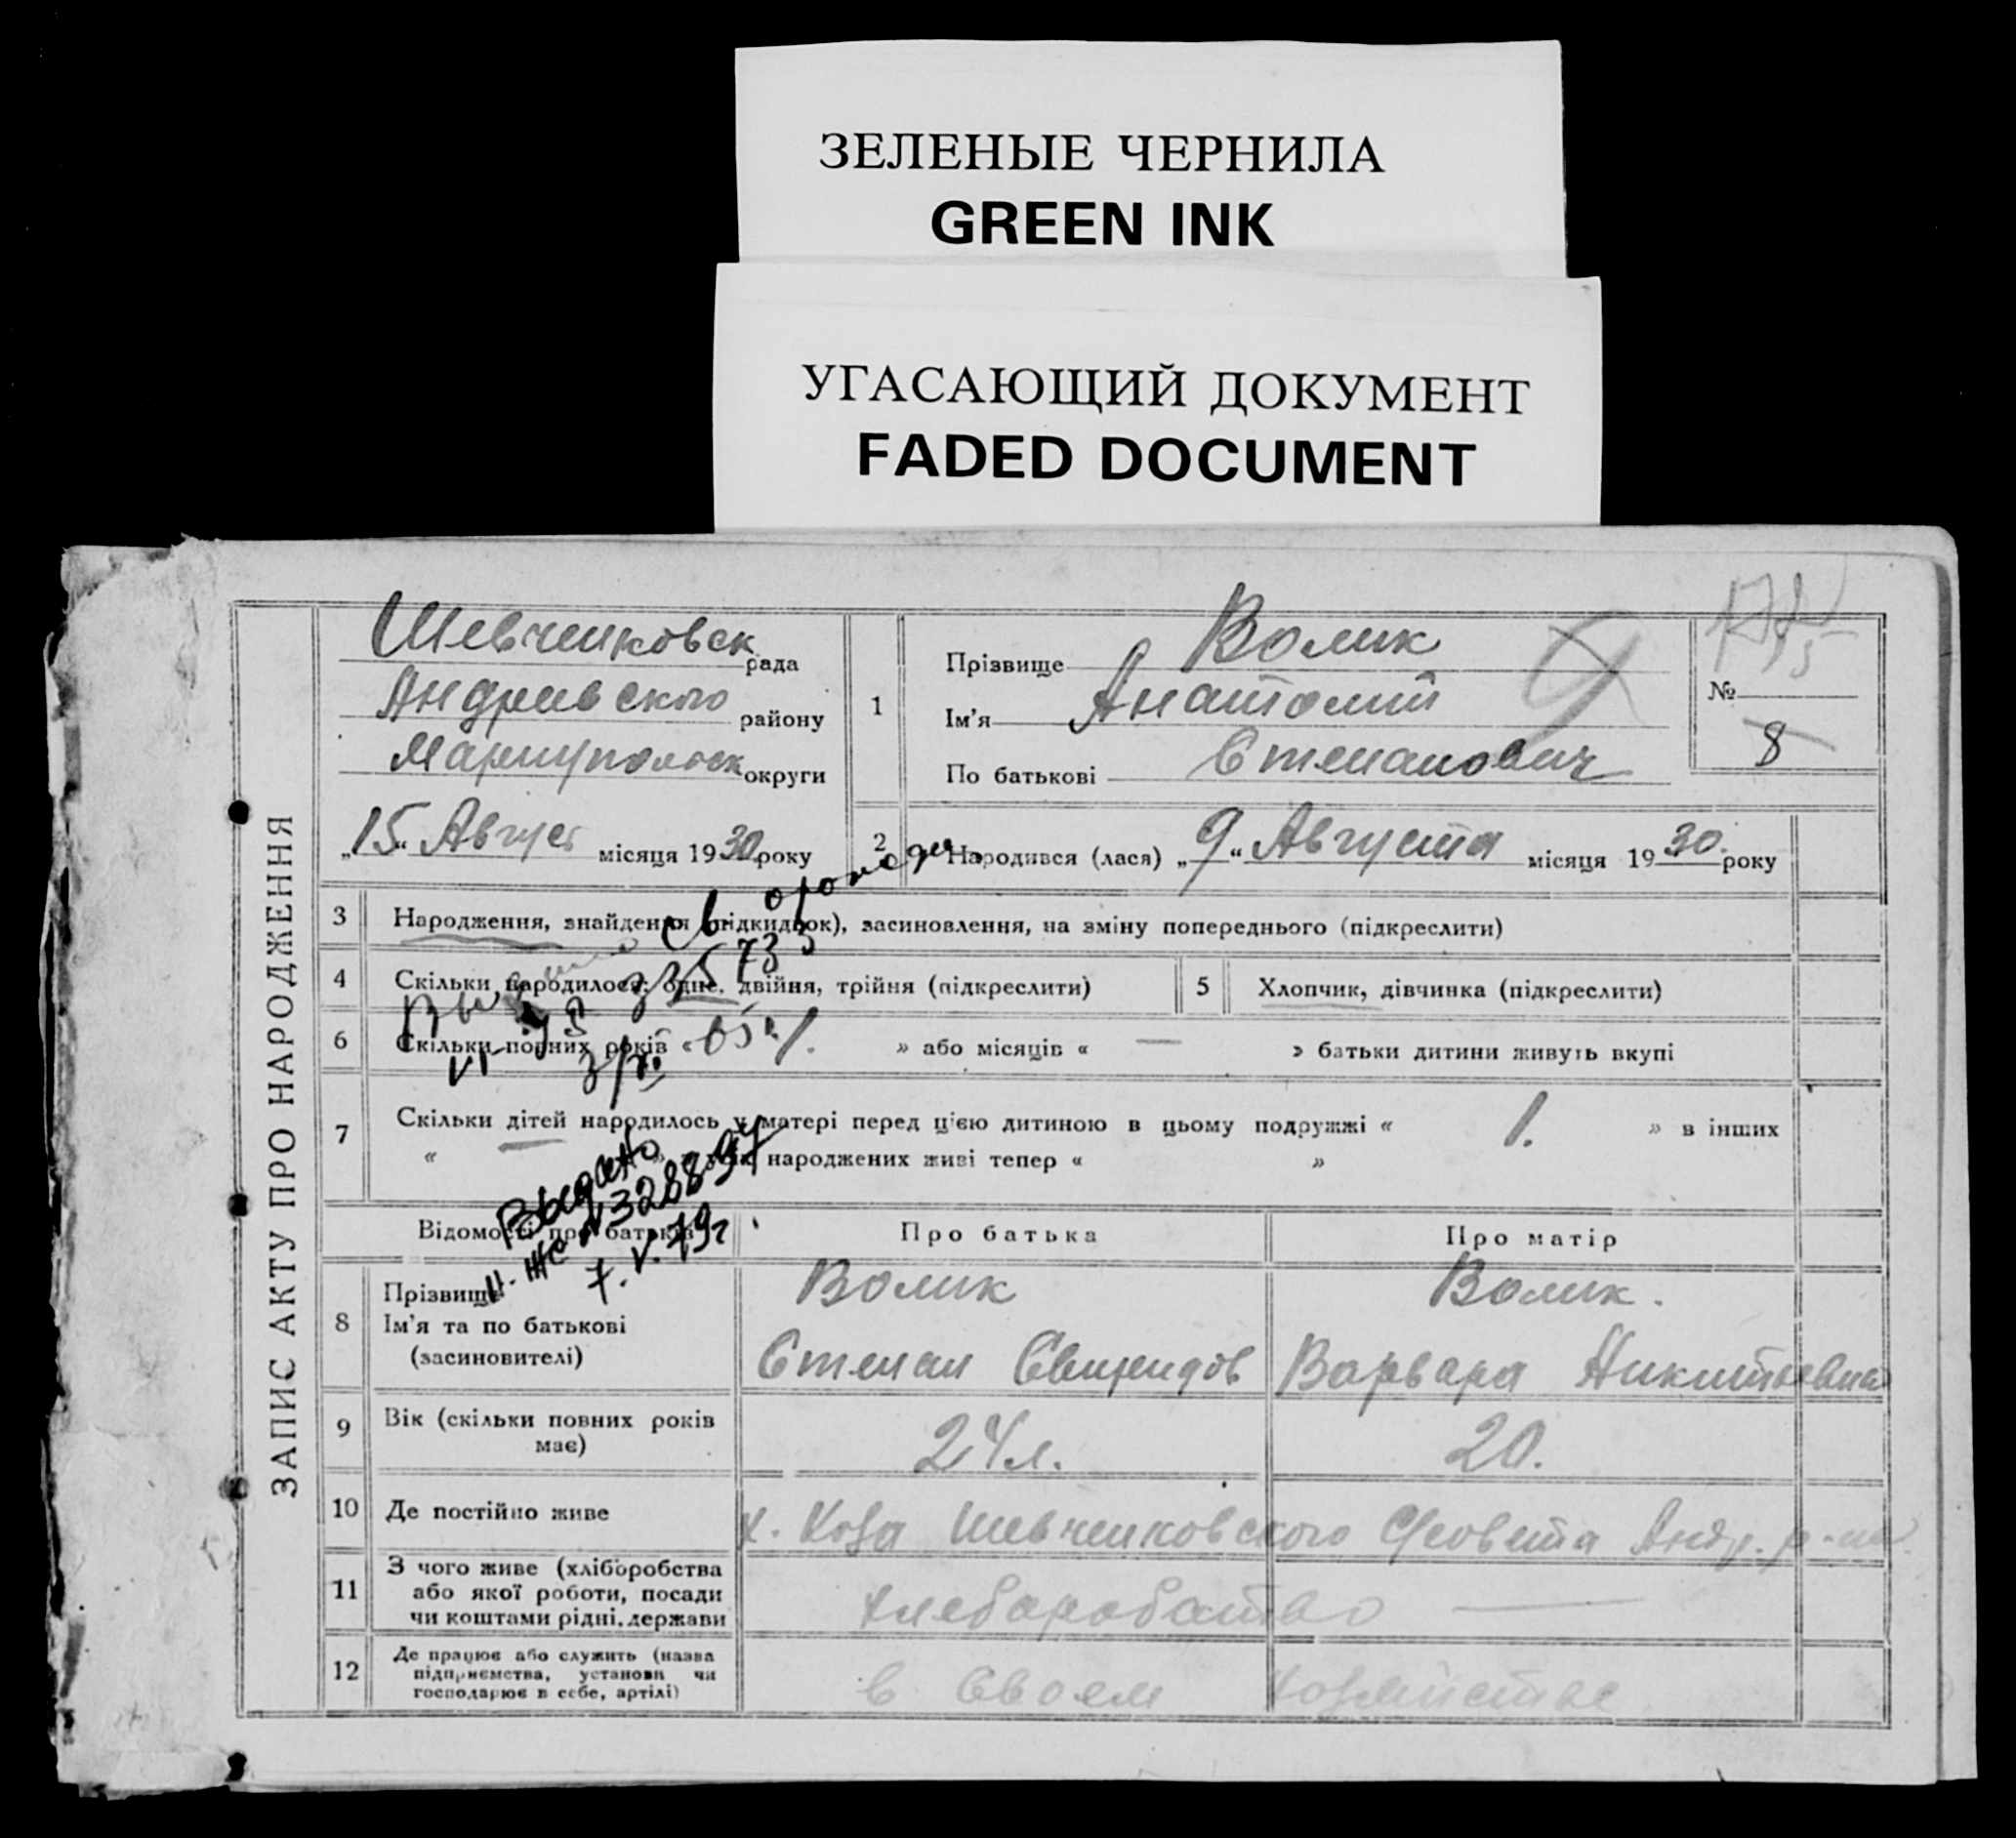 ЗЕЛЕНЫЕ ЧЕРНИЛА
GREEN INK
УГАСАЮЩИЙ ДОКУМЕНТ
FADED DOCUMENT
ЗАПИС АКТУ ПРО НАРОДЖЕННЯ
Шевченковск рада
Андриевского району
Мариупольск округи
„15“ Август місяця 1930 року
1
Прізвище Волик
Ім'я Анатолий
По батькові Степанович
№
8
2 Народився (лася) „9“ Августа місяця 1930. року
3 Народження, знайдення (підкидьок), засиновлення, на зміну попереднього (підкреслити)
4 Скільки народилося: одне, двійня, трійня (підкреслити)
5 Хлопчик, дівчинка (підкреслити)
6 Скільки повних років « » або місяців « — » батьки дитини живуть вкупі
7 Скільки дітей народилось у матері перед цією дитиною в цьому подружжі « 1. » в інших
« » народжених живі тепер « »
Выдано
7.V.79г
Відомості про батьків
Про батька
Про матір
8 Прізвище
Ім'я та по батькові
(засиновителі)
Волик
Степан
Волик.
Варвара Никитьевна
9 Вік (скільки повних років має)
24л.
20.
10 Де постійно живе
х. Шевченковского С/совета Андр. р-на
11 З чого живе (хліборобства
або якої роботи, посади
чи коштами рідні, держави
хлебаробатво —
12 Де працює або служить (назва
підприємства, установи чи
господарює в себе, артілі)
в своем хозяйстве